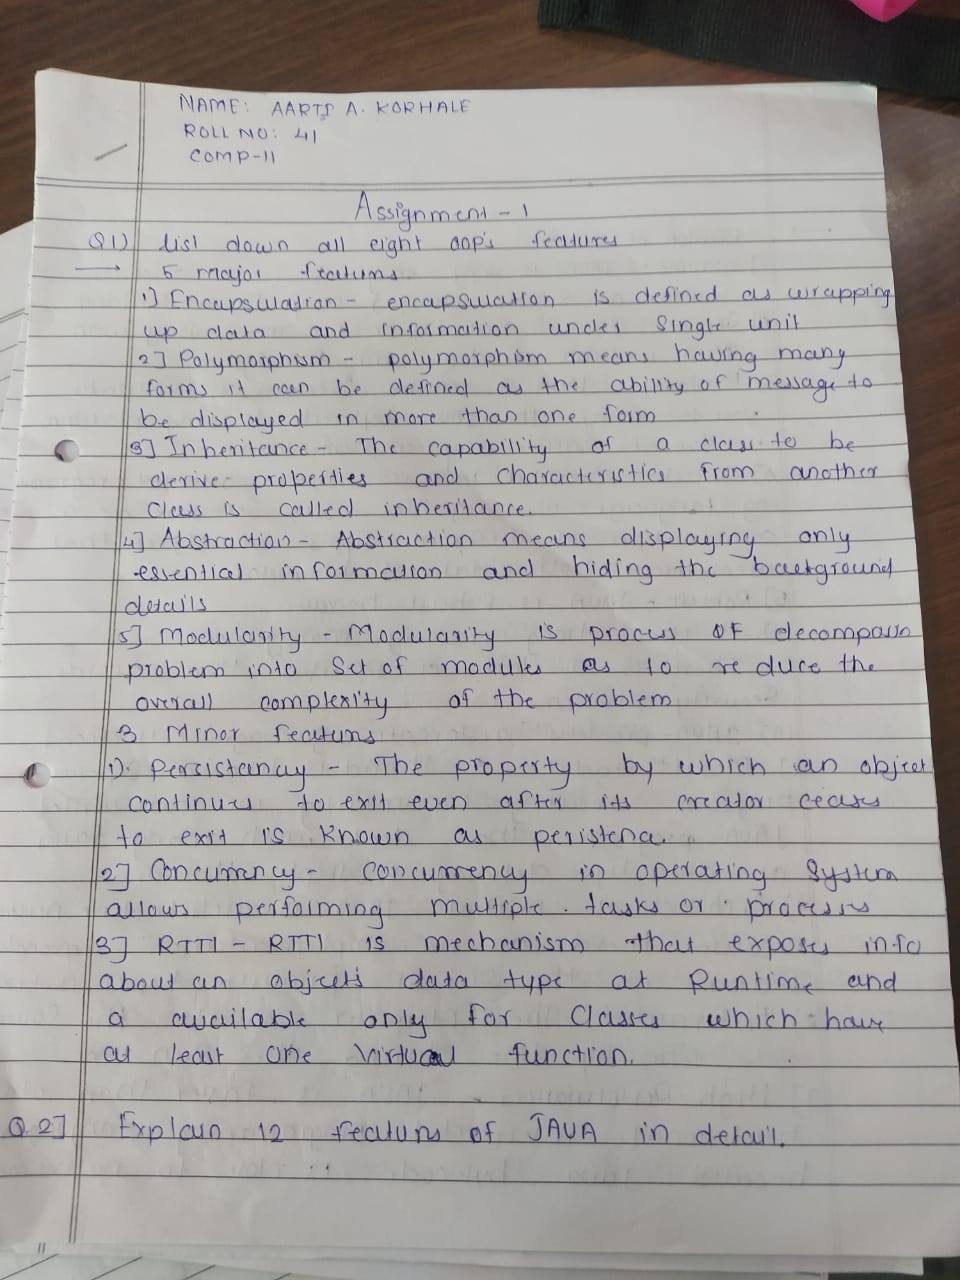 NAME: AARTI A. KORHALE
ROLL NO: 41
COMP-11
Assignment - 1
Q1) list down all eight oop's features
5 major features
1] Encapsulation - encapsulation is defined as wrapping
up data and information under single unit
2] Polymorphism - polymorphism means having many
forms it can be defined as the ability of message to
be displayed in more than one form
3] Inheritance - The capability of a class to be
derive properties and characteristics from another
class is called inheritance.
4] Abstraction - Abstraction means displaying only
essential information and hiding the background
details
5] Modularity - Modularity is process of decomposin
problem into set of modules as to reduce the
overall complexity of the problem
3 Minor features
1). Persistancy - The property by which an object
continues to exit even after its creator ceases
to exit is known as peristena.
2] Concurrency - concurrency in operating system
allows performing multiple tasks or processes
3] RTTI - RTTI is mechanism that exposes info
about an object's data type at Runtime and
a available only for classes which have
at least one virtual function.
Q.2] Explain 12 features of JAVA in detail.